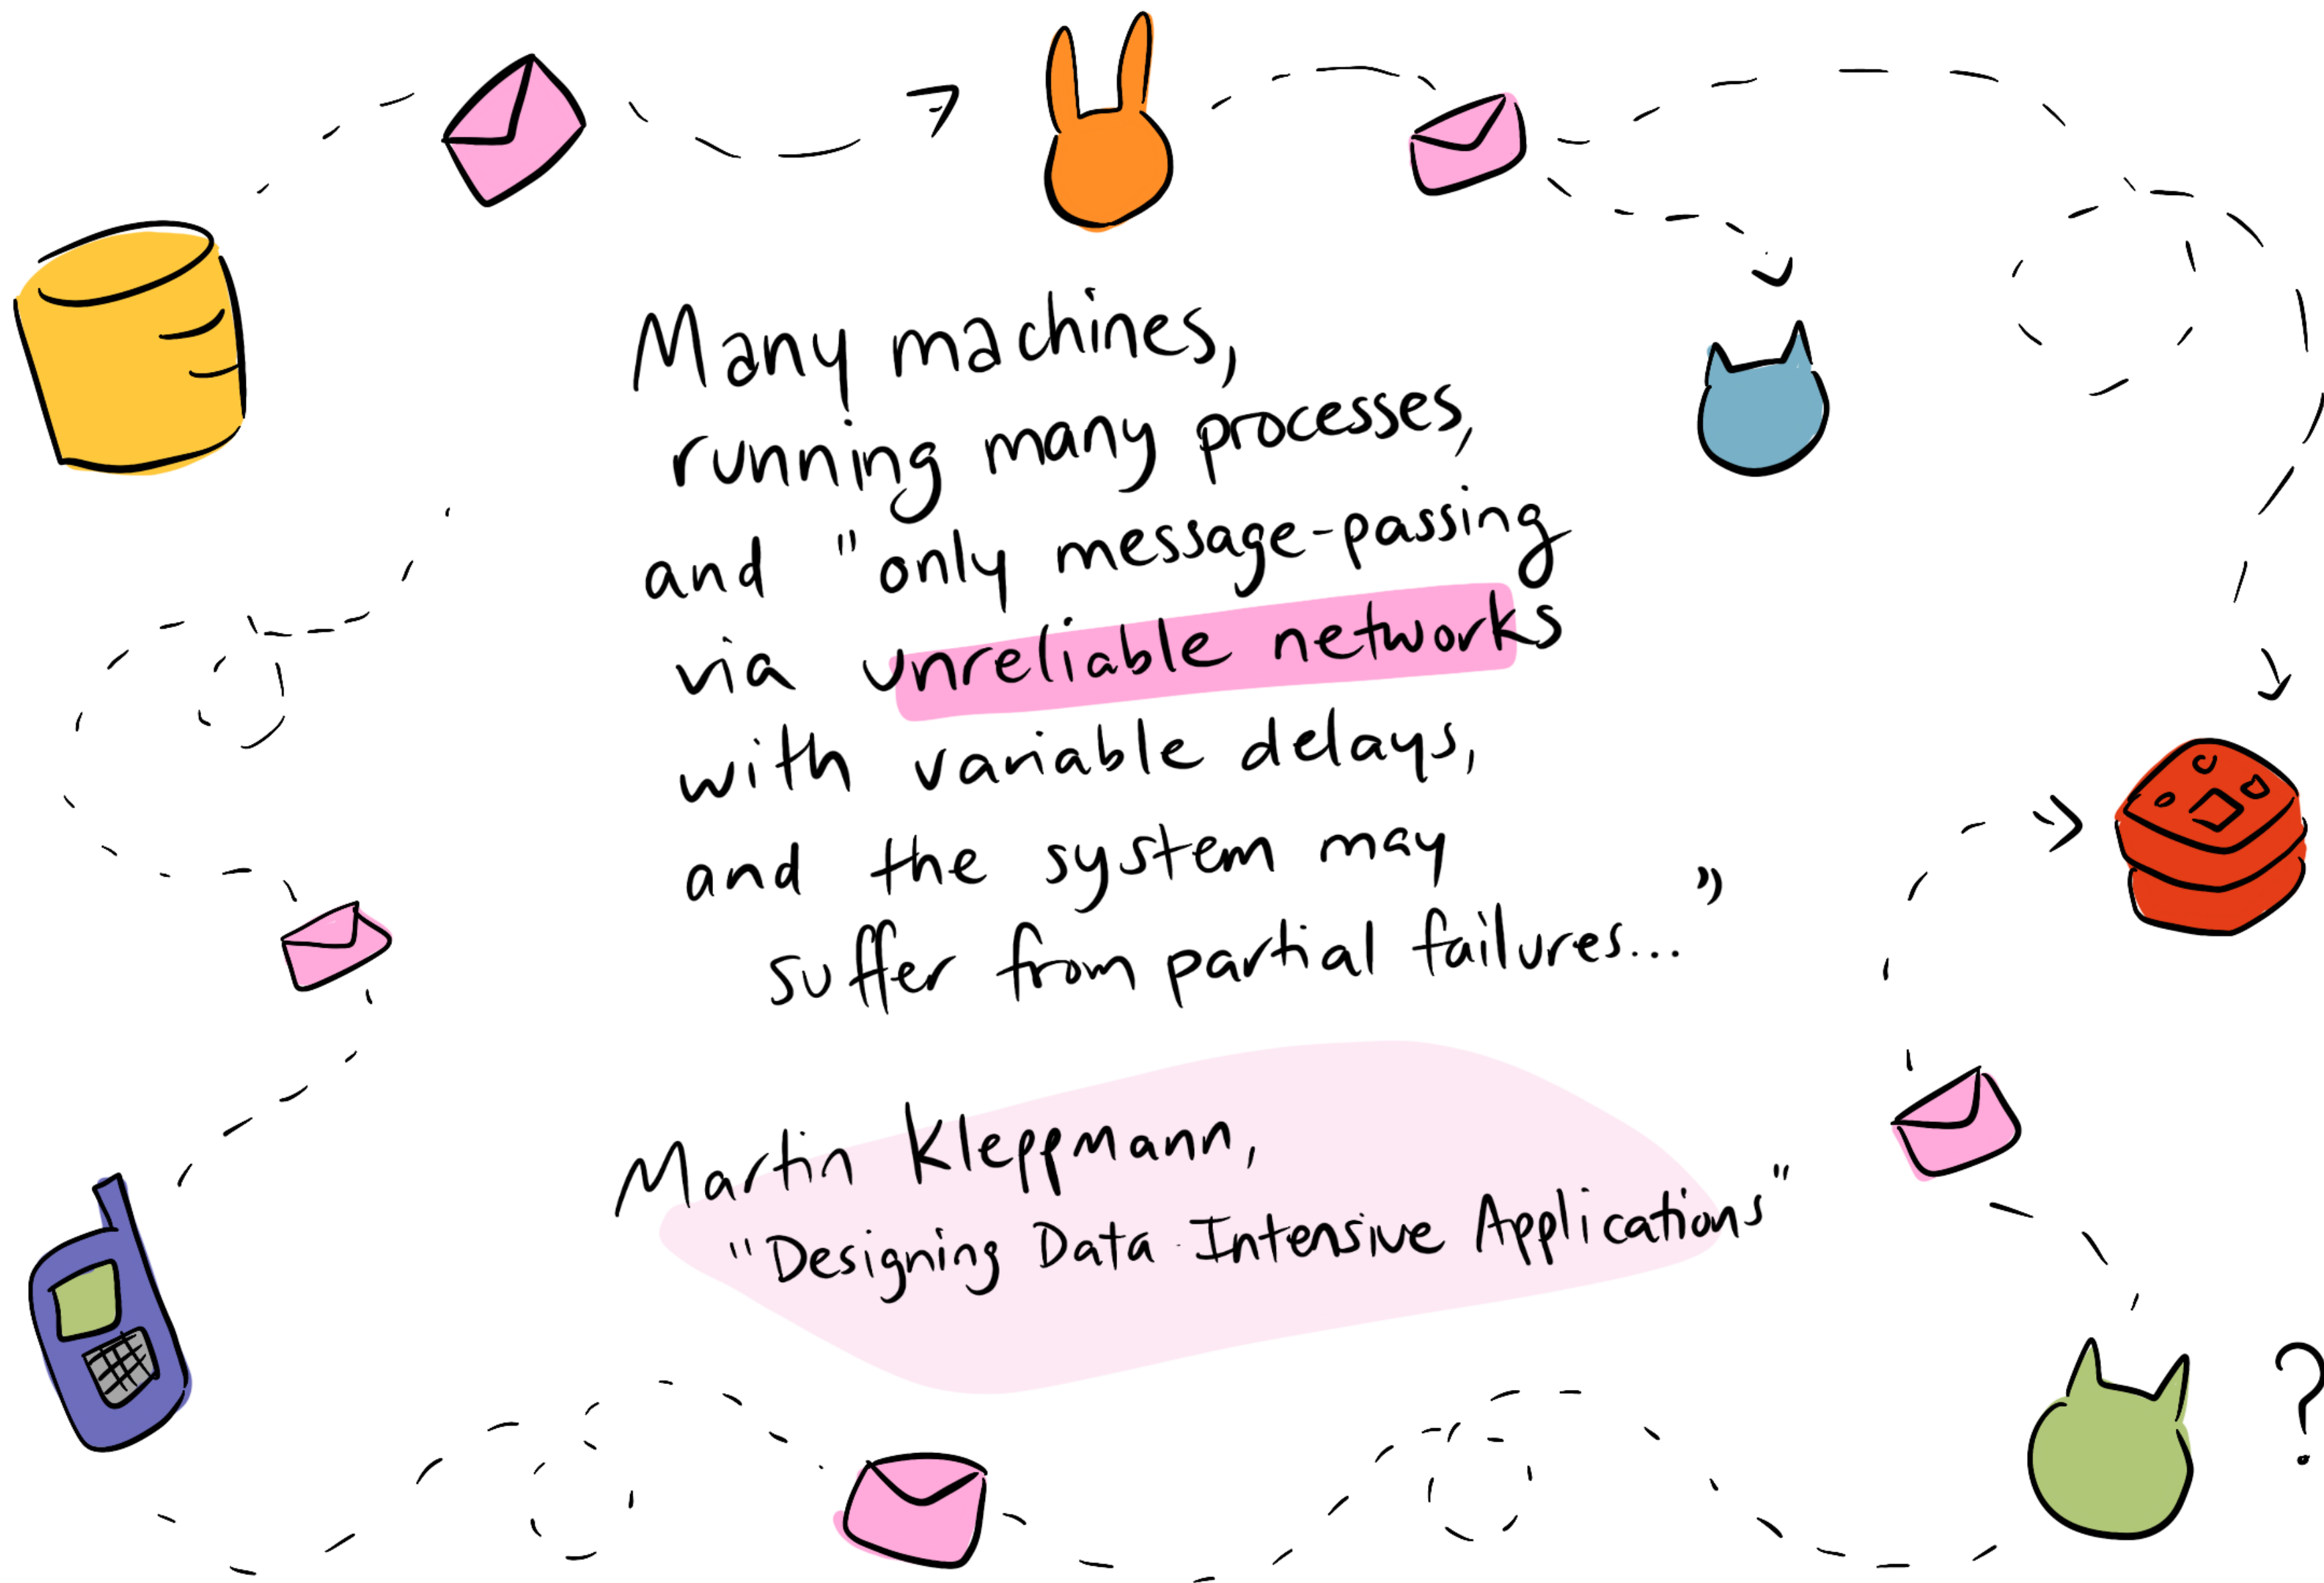 Many machines,
running many processes,
and "only message-passing
via unreliable networks
with variable delays,
and the system may
suffer from partial failures..."
Martin Kleppmann,
"Designing Data-Intensive Applications"
?